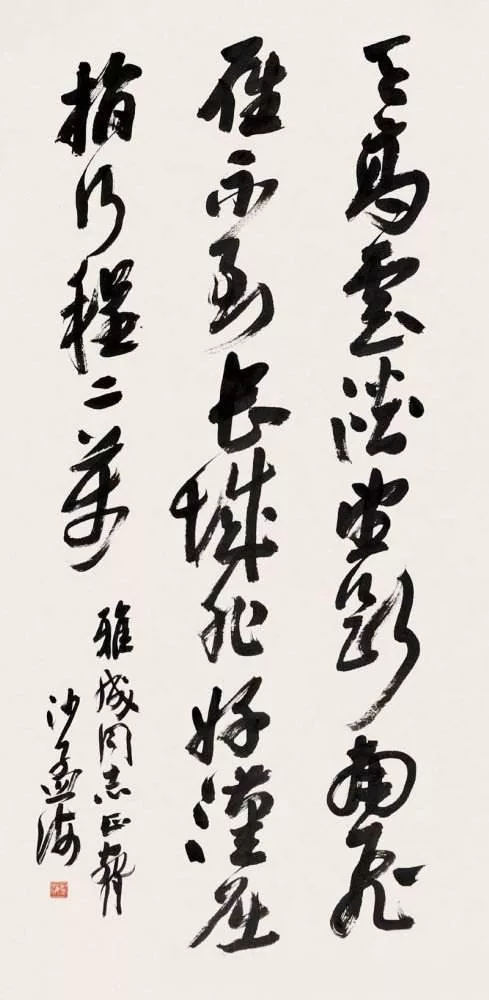 天高云淡望断南飞
雁不到长城非好汉屈
指行程二万
雅成同志正䂨
沙孟海